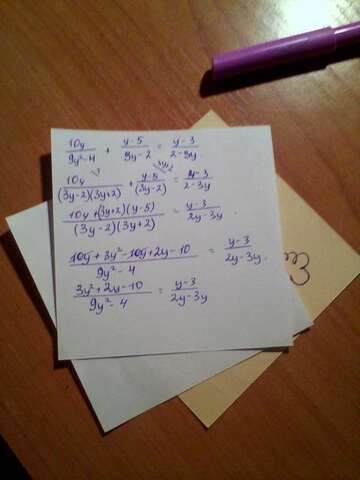 10y/(9y²-4) + (y-5)/(3y-2) = (y-3)/(2-3y)
10y/((3y-2)(3y+2)) + (y-5)/(3y-2) = (y-3)/(2-3y)
(10y+(3y+2)(y-5))/((3y-2)(3y+2)) = (y-3)/(2y-3y)
(10y+3y²-10y+2y-10)/(9y²-4) = (y-3)/(2y-3y).
(3y²+2y-10)/(9y²-4) = (y-3)/(2y-3y)